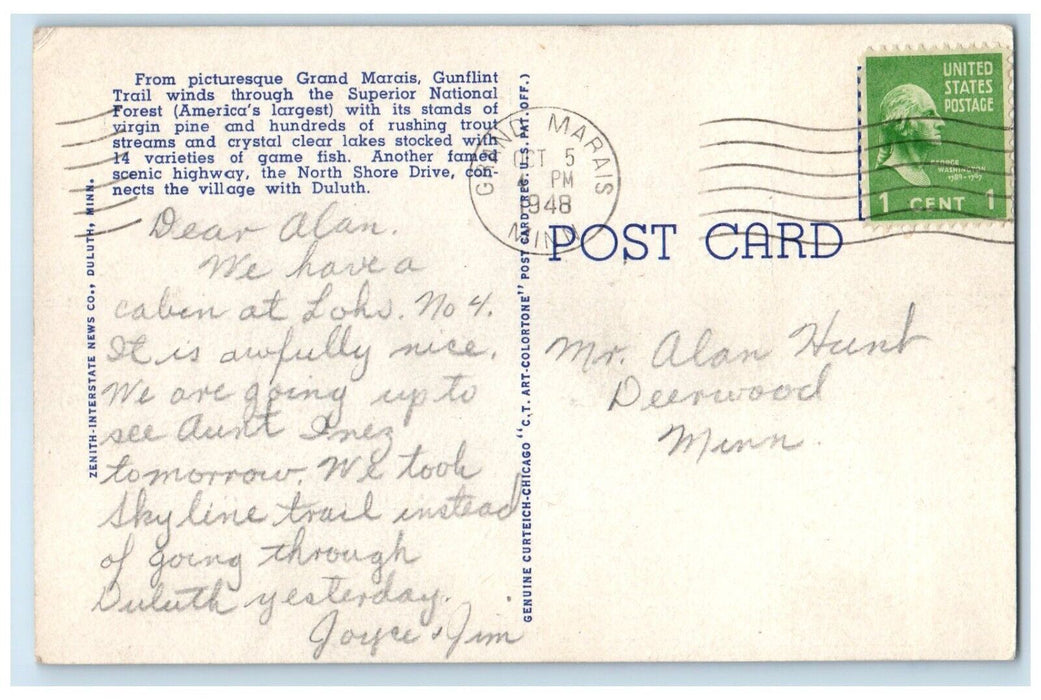 From picturesque Grand Marais, Gunflint
Trail winds through the Superior National
Forest (America's largest) with its stands of
virgin pine and hundreds of rushing trout
streams and crystal clear lakes stocked with
14 varieties of game fish. Another famed
scenic highway, the North Shore Drive, con-
nects the village with Duluth.
ZENITH-INTERSTATE NEWS CO., DULUTH, MINN.
Dear Alan.
We have a
cabin at Lohs. No 4.
It is awfully nice.
We are going up to
see Aunt Inez
tomorrow. We took
Skyline trail instead
of going through
Duluth yesterday.
Joyce & Jim
GENUINE CURTEICH-CHICAGO "C.T. ART-COLORTONE" POST CARD (REG. U.S. PAT. OFF.)
GRAND MARAIS
OCT 5
PM
1948
MINN
POST CARD
UNITED
STATES
POSTAGE
GEORGE
WASHINGTON
1789-1797
1 CENT 1
Mr. Alan Hunt
Deerwood
Minn.